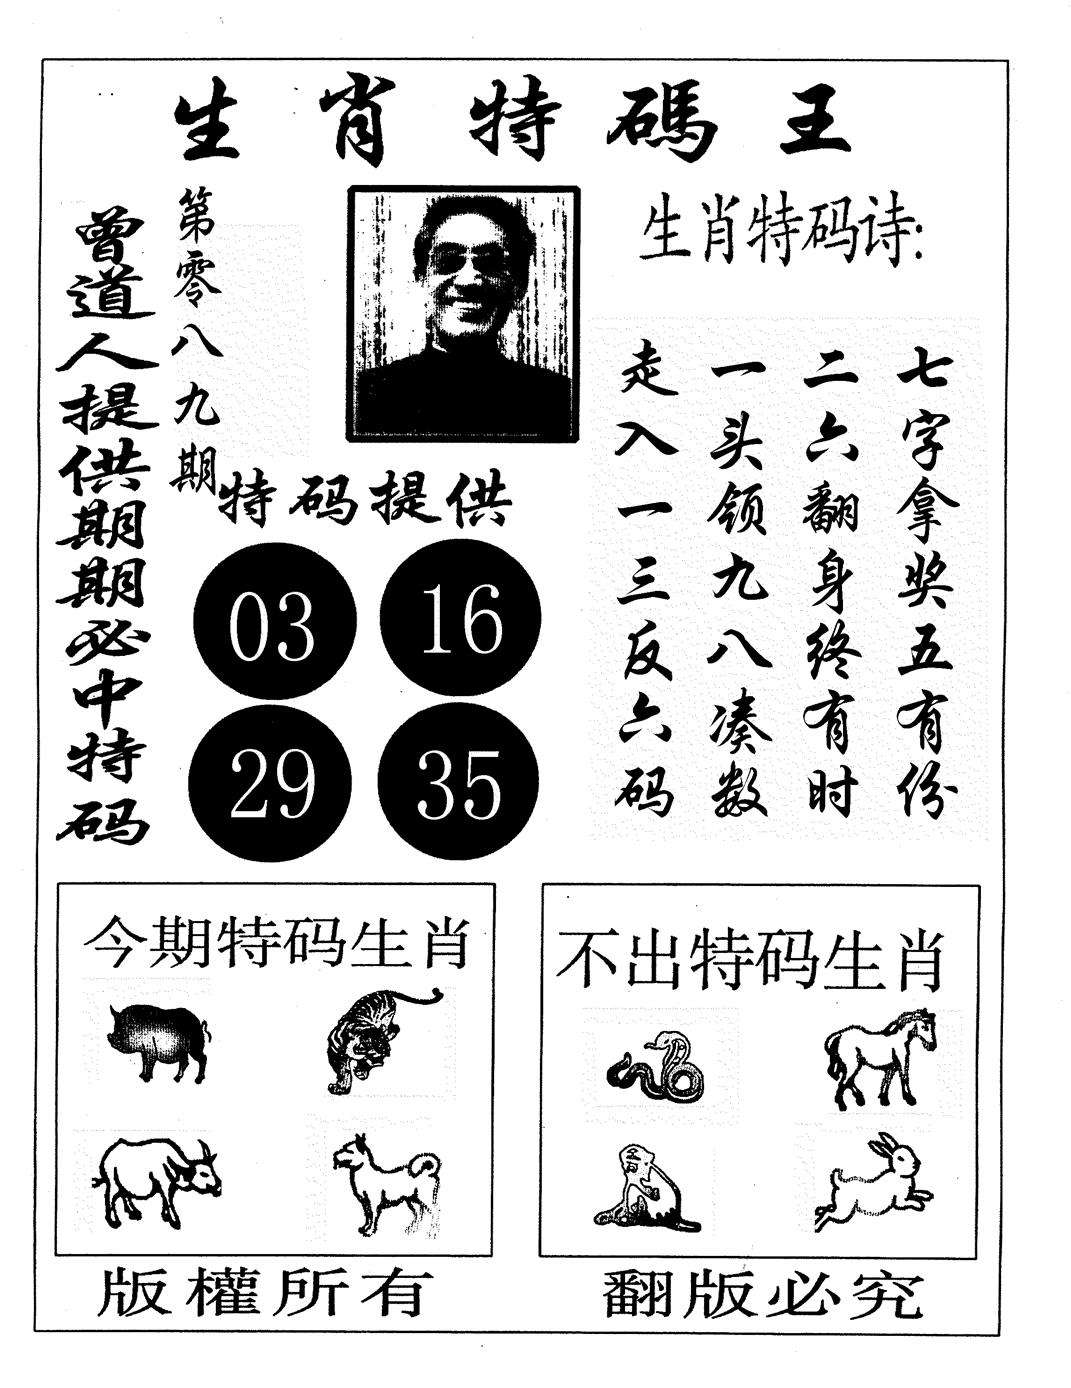 生肖特碼王
曾道人提供期期必中特码
第零八九期
生肖特码诗:
七字拿奖五有份
二六翻身终有时
一头领九八凑数
走入一三反六码
特码提供
03 16
29 35
今期特码生肖
不出特码生肖
版權所有
翻版必究